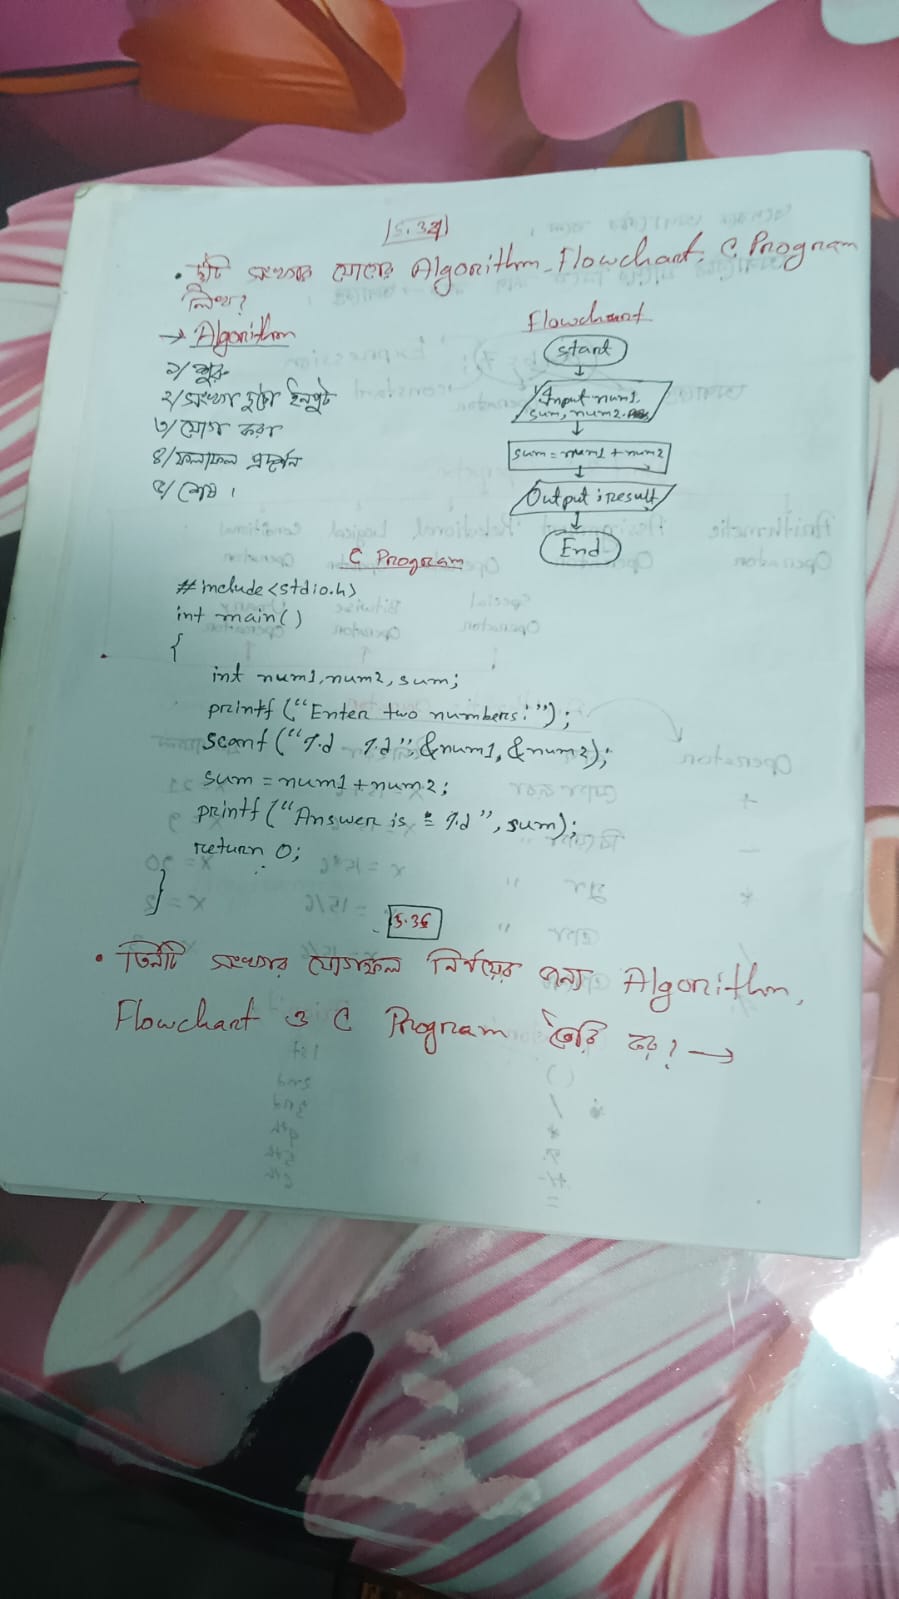 ৫.২৭
• দুটি সংখ্যার যোগের Algorithm, Flowchart, C Program
লিখুন?
→ Algorithm
১/ শুরু
২/ সংখ্যা দুটি ইনপুট
৩/ যোগ করা
৪/ ফলাফল প্রদর্শন
৫/ শেষ।
Flowchart
Start
Input num1,
sum, num2.
sum = num1 + num2
Output : result
End
C Program
#include<stdio.h>
int main()
{
int num1, num2, sum;
printf("Enter two numbers:");
scanf("%d %d", &num1, &num2);
sum = num1 + num2;
printf("Answer is = %d", sum);
return 0;
}
৫.২৮
• তিনটি সংখ্যার যোগফল নির্ণয়ের জন্য Algorithm,
Flowchart ও C Program তৈরি হয়? →